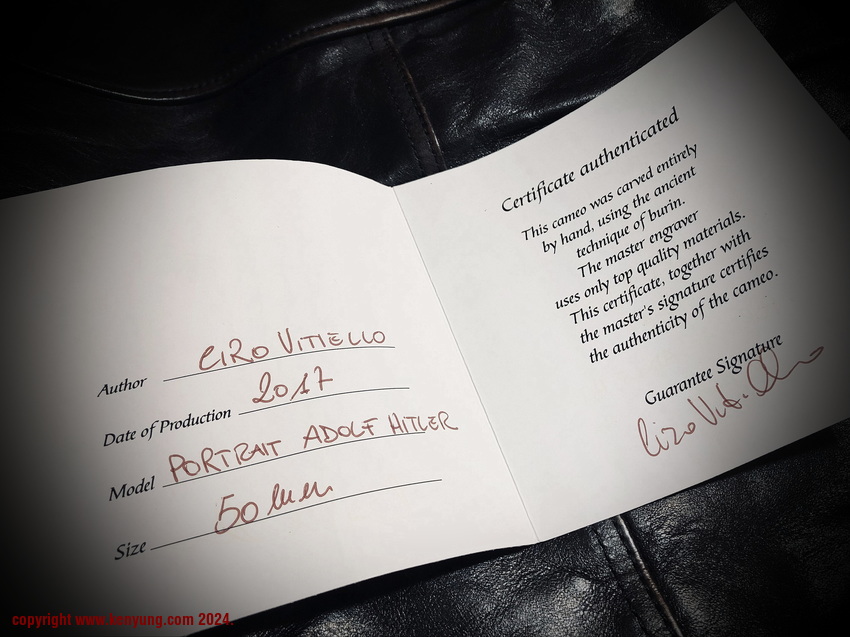 Author CIRO VITIELLO
Date of Production 2017
Model PORTRAIT ADOLF HITLER
Size 50 mm
Certificate authenticated
This cameo was carved entirely
by hand, using the ancient
technique of burin.
The master engraver
uses only top quality materials.
This certificate, together with
the master's signature certifies
the authenticity of the cameo.
Guarantee Signature
Ciro Vitiello
copyright www.kenyung.com 2024.